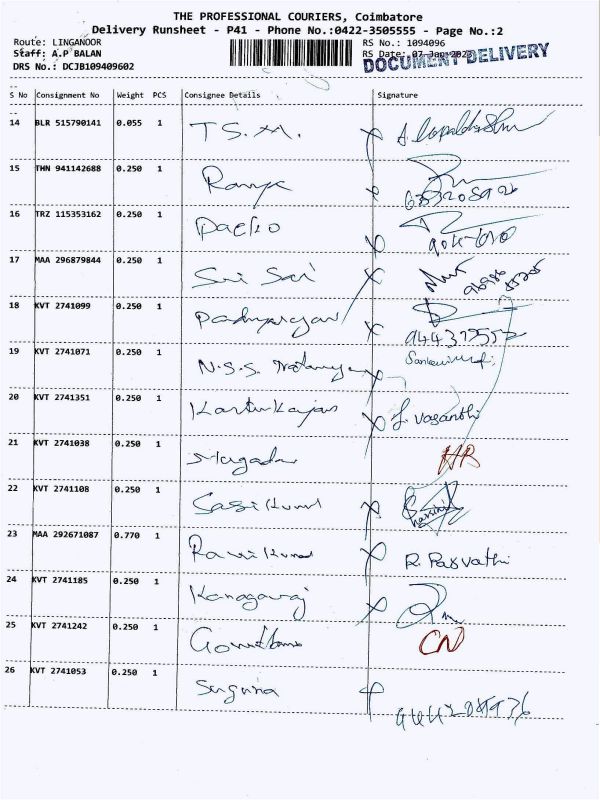 THE PROFESSIONAL COURIERS, Coimbatore
Delivery Runsheet - P41 - Phone No.:0422-3505555 - Page No.:2
Route: LINGANOOR RS No.: 1094096
Staff: A.P BALAN RS Date: 07-Jan-2023
DOCUMENT DELIVERY
DRS No.: DCJB109409602
S No Consignment No Weight PCS Consignee Details Signature
14 BLR 515790141 0.055 1 T.S.M.
15 THN 941142688 0.250 1 Ramya
16 TRZ 115353162 0.250 1
17 MAA 296879844 0.250 1 Sri Sai
18 KVT 2741099 0.250 1
19 KVT 2741071 0.250 1 N.S.S.
20 KVT 2741351 0.250 1 J. Vasanthi
21 KVT 2741038 0.250 1
22 KVT 2741108 0.250 1 Sasikumar
23 MAA 292671087 0.770 1 Ravikumar R. Parvathi
24 KVT 2741185 0.250 1 Kanagaraj
25 KVT 2741242 0.250 1 CN
26 KVT 2741053 0.250 1 Suguna